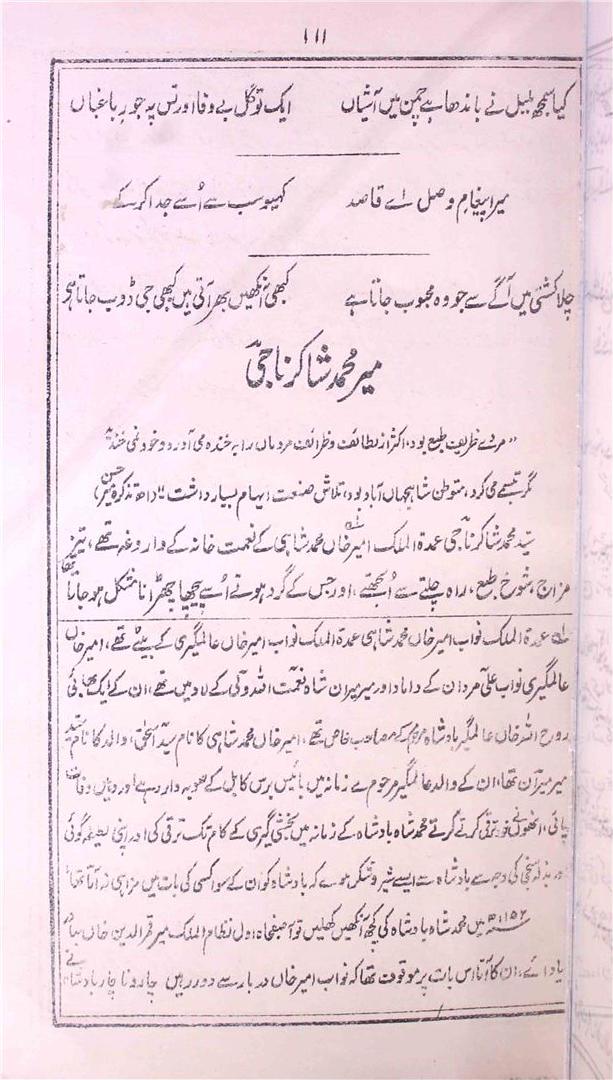 ۱۱۱
کیا سمجھ بلبل نے باندھا ہے چمن میں آشیاں ایک تو گل بے وفا اور تس پہ جورِ باغباں
میرا پیغامِ وصل اے قاصد کہیو سب سے اُسے جدا کر کے
چلا کشتی میں آگے سے جو وہ محبوب جاتا ہے کبھی آنکھیں بھر آتی ہیں کبھی جی ڈوب جاتا ہے
میر محمد شاکر ناجیؔ
"مردے ظریف طبع بود، اکثر از لطائف و ظرائف مردماں را بہ خندہ می آورد و خود نمی خندید
گر تبسمے می کرد، متوطن شاہجہاں آباد بود، تلاش صنعت ایہام بسیار داشت" (تذکرہ میر حسن)
سید محمد شاکر ناجی عمدۃ الملک امیر خاں محمد شاہی کے نعمت خانہ کے داروغہ تھے، تیز
مزاج، شوخ طبع، راہ چلتے سے اُلجھتے، اور جس کے گرد ہوتے اُسے پیچھا چھڑانا مشکل ہو جاتا تھا
لہ عمدۃ الملک نواب امیر خاں محمد شاہی عمدۃ الملک نواب امیر خاں عالمگیری کے بیٹے تھے، امیر خاں
عالمگیری نواب علی مردان کے داماد اور میر میران شاہ نعمت اللہ ولی کے اولاد میں تھے، ان کے ایک بھائی
روح اللہ خاں عالمگیر بادشاہ مرحوم کے مصاحب خاص تھے، امیر خاں محمد شاہی کا نام سید اسحٰق، والد کا نام سید
میر میران تھا، ان کے والد عالمگیر مرحوم کے زمانہ میں بائیس برس کابل کے صوبہ دار رہے اور وہیں وفات
پائی، انھوں نے ترقی کرتے کرتے محمد شاہ بادشاہ کے زمانہ میں بخشی گیری کے کام تک ترقی کی اور اپنی لطیفہ گوئی
اور بذلہ سنجی کی وجہ سے بادشاہ سے ایسے شیر و شکر ہوے کہ بادشاہ کو ان کے سوا کسی کی بات میں مزا ہی نہ آتا تھا
۱۱۵۲ھ میں محمد شاہ بادشاہ کی کچھ آنکھیں کھلیں تو آصفجاہ اول نظام الملک میر قمر الدین خاں بہادر
یاد آئے، ان کا آنا اس بات پر موقوف تھا کہ نواب امیر خاں دربار سے دور رہیں چار و ناچار بادشاہ نے